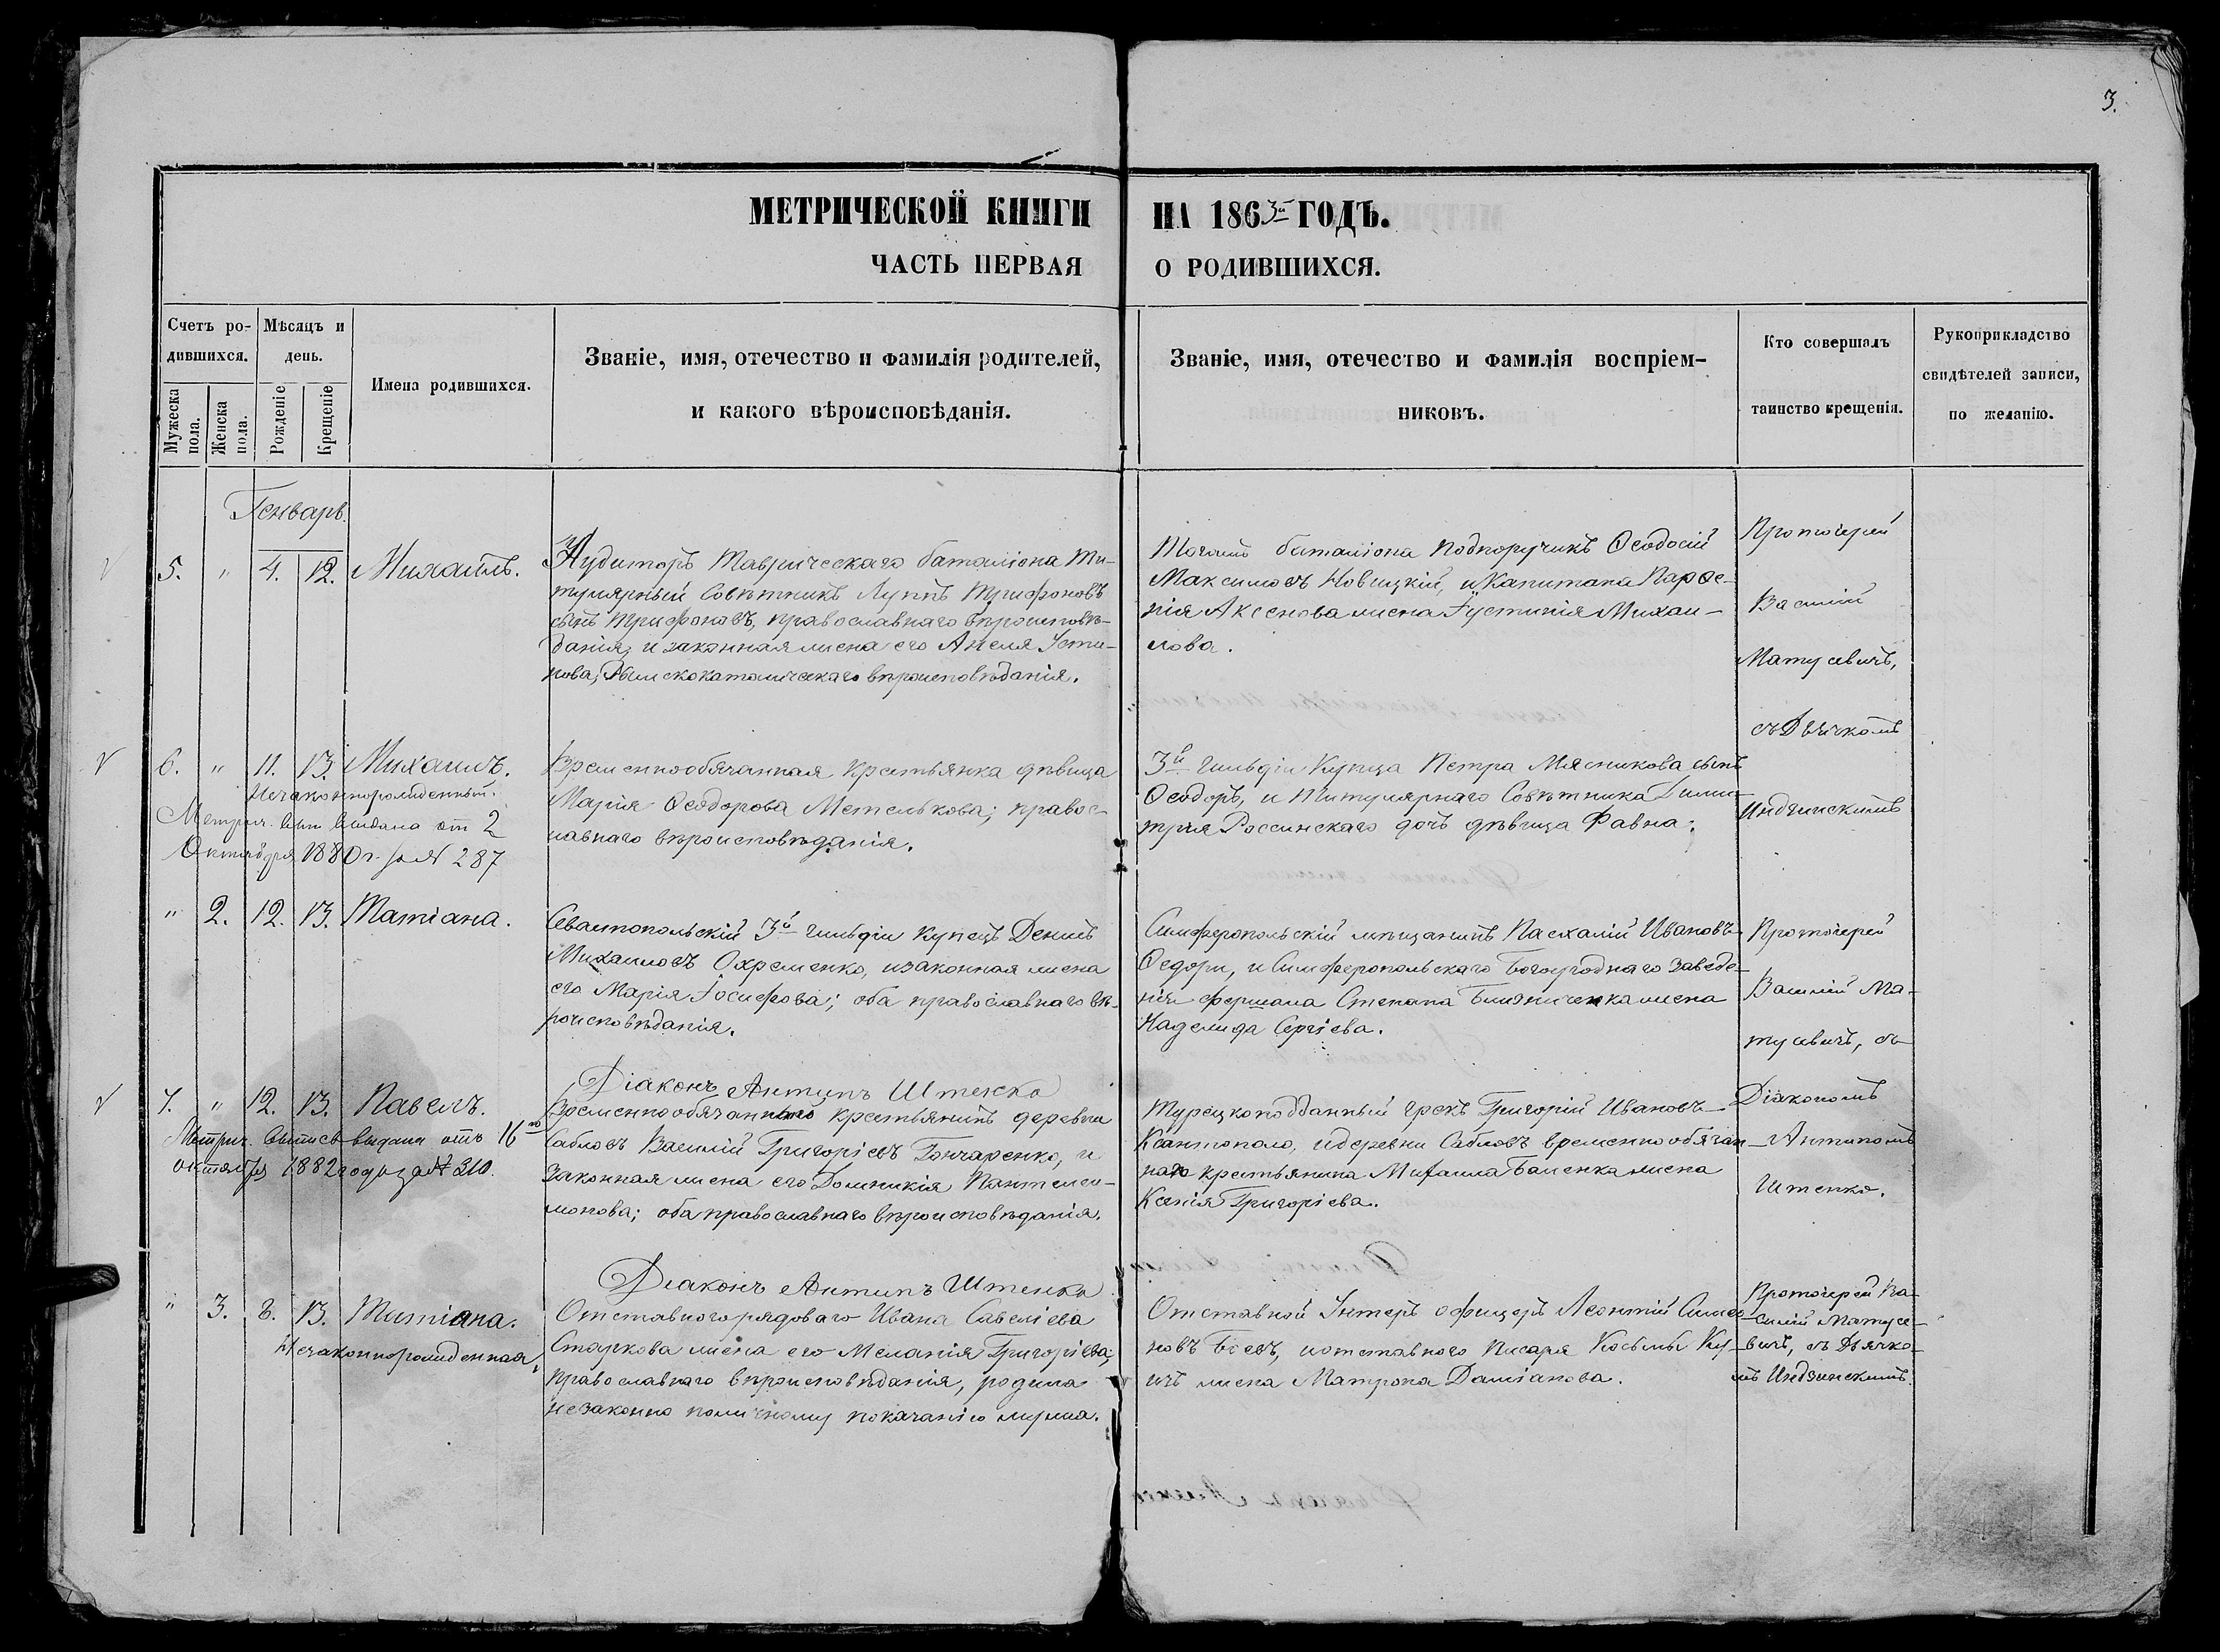 3.
МЕТРИЧЕСКОЙ КНИГИ НА 1863й ГОДЪ.
ЧАСТЬ ПЕРВАЯ О РОДИВШИХСЯ.
Счетъ ро-
дившихся.
Мужеска пола.
Женска пола.
Мѣсяцъ и
день.
Рожденіе
Крещеніе
Имена родившихся.
Званіе, имя, отечество и фамилія родителей,
и какого вѣроисповѣданія.
Званіе, имя, отечество и фамилія воспріем-
никовъ.
Кто совершалъ
таинство крещенія.
Рукоприкладство
свидѣтелей записи,
по желанію.
Генварь.
5. " 4. 12. Михаилъ.
Аудиторъ Таврическаго баталіона Ти-
тулярный Совѣтникъ Луппъ Трифоновъ
сынъ Трифоновъ, православнаго вѣроисповѣ-
данія, и законная жена его Анеля Усти-
нова, Римскокатолическаго вѣроисповѣданія.
Тогожъ баталіона Подпоручикъ Ѳеодосій
Максимовъ Новицкій, и Капитана Парѳе-
нія Аксенова жена Іустинія Михаи-
лова.
Протоіерей
Василій
Матусевичъ,
съ Дьячкомъ
Индзинскимъ
6. " 11. 13. Михаилъ.
Незаконнорожденный.
Метрич. вып. выдана от 2
Октября 1880 г. за № 287
Временнообязанная крестьянка дѣвица
Марія Ѳеодорова Метелькова; правос-
лавнаго вѣроисповѣданія.
3й гильдіи Купца Петра Мясникова сынъ
Ѳеодоръ, и Титулярнаго Совѣтника Дими-
трія Россинскаго дочь дѣвица Фавна.
" 2. 12. 13. Татіана.
Севастопольскій 3й гильдіи Купецъ Денисъ
Михаиловъ Охременко, и законная жена
его Марія Іосифова; оба православнаго вѣ-
роисповѣданія.
Симферопольскій мѣщанинъ Пасхалій Ивановъ
Ѳедори, и Симферопольскаго Богоугоднаго Заведе-
нія фершала Степана Близниченка жена
Надежда Сергіева.
Протоіерей
Василій Ма-
тусевичъ, съ
Діакономъ
Антипомъ
Штепко.
Діаконъ Антипъ Штепко
7. " 12. 13. Павелъ.
Метрич. выпись выдана отъ 16го
октября 1882 года за № 310.
Временнообязанный крестьянинъ деревни
Сабловъ Василій Григоріевъ Гончаренко, и
законная жена его Домникія Пантелеи-
монова; оба православнаго вѣроисповѣданія.
Турецкоподданный грекъ Григорій Ивановъ
Ксантополо, и деревни Сабловъ временнообязан-
наго крестьянина Михаила Баценка жена
Ксенія Григоріева.
Діаконъ Антипъ Штепко
" 3. 8. 13. Татіана.
Незаконнорожденная,
Отставного рядоваго Ивана Савеліева
Старкова жена его Меланія Григоріева,
православнаго вѣроисповѣданія, родила
незаконно по личному показанію мужа.
Отставной Унтеръ офицеръ Леонтій Симео-
новъ Боевъ, и отставного Писаря Косьмы Ку-
жена Матрона Даміанова.
Протоіерей Ва-
силій Матусе-
вичъ, съ Дьячко-
мъ Индзинскимъ.